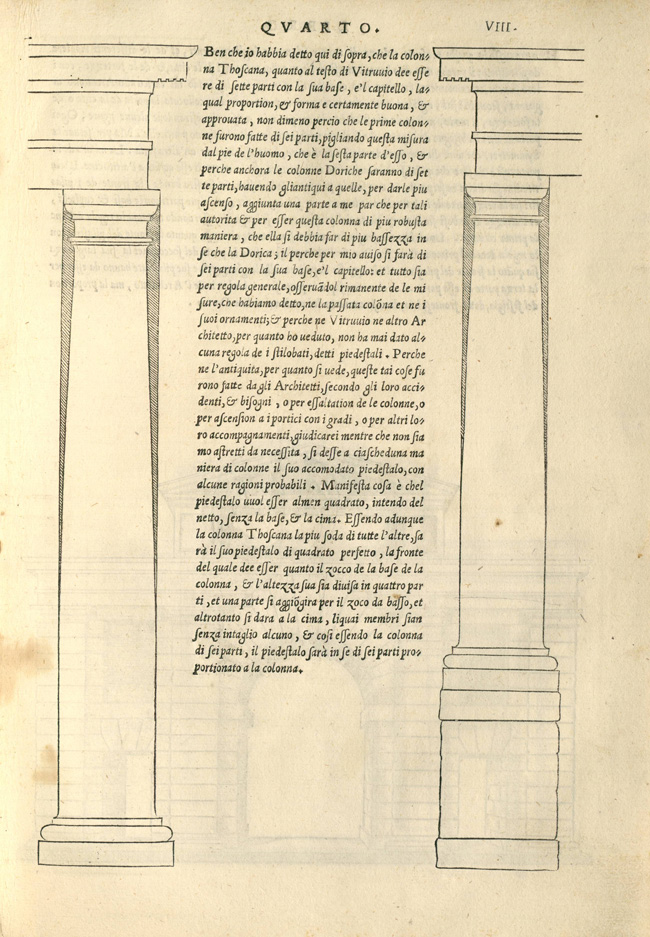 QVARTO.
VIII.
Ben che io habbia detto qui di sopra, che la colon-
na Thoscana, quanto al testo di Vitruuio dee esse
re di sette parti con la sua base, e'l capitello, la-
qual proportion, & forma e certamente buona, &
approuata, non dimeno percio che le prime colon-
ne furono fatte di sei parti, pigliando questa misura
dal pie de l'huomo, che è la sesta parte d'esso, &
perche anchora le colonne Doriche saranno di set
te parti, hauendo gliantiqui a quelle, per darle piu
ascenso, aggiunta una parte a me par che per tali
autorita & per esser questa colonna di piu robusta
maniera, che ella si debbia far di piu bassezza in
se che la Dorica; il perche per mio auiso si farà di
sei parti con la sua base, e'l capitello: et tutto sia
per regola generale, osseruādol rimanente de le mi
sure, che habiamo detto, ne la passata colōna et ne i
suoi ornamenti; & perche ne Vitruuio ne altro Ar
chitetto, per quanto ho ueduto, non ha mai dato al-
cuna regola de i stilobati, detti piedestali. Perche
ne l'antiquita, per quanto si uede, queste tai cose fu
rono fatte dagli Architetti, secondo gli loro acci-
denti, & bisogni, o per essaltation de le colonne, o
per ascension a i portici con i gradi, o per altri lo-
ro accompagnamenti, giudicarei mentre che non sia
mo astretti da necessita, si desse a ciascheduna ma
niera di colonne il suo accomodato piedestalo, con
alcune ragioni probabili. Manifesta cosa è chel
piedestalo uuol esser almen quadrato, intendo del
netto, senza la base, & la cima. Essendo adunque
la colonna Thoscana la piu soda di tutte l'altre, sa
rà il suo piedestalo di quadrato perfetto, la fronte
del quale dee esser quanto il zocco de la base de la
colonna, & l'altezza sua sia diuisa in quattro par
ti, et una parte si aggiōgira per il zoco da basso, et
altrotanto si dara a la cima, liquai membri sian
senza intaglio alcuno, & cosi essendo la colonna
di sei parti, il piedestalo sarà in se di sei parti pro-
portionato a la colonna.